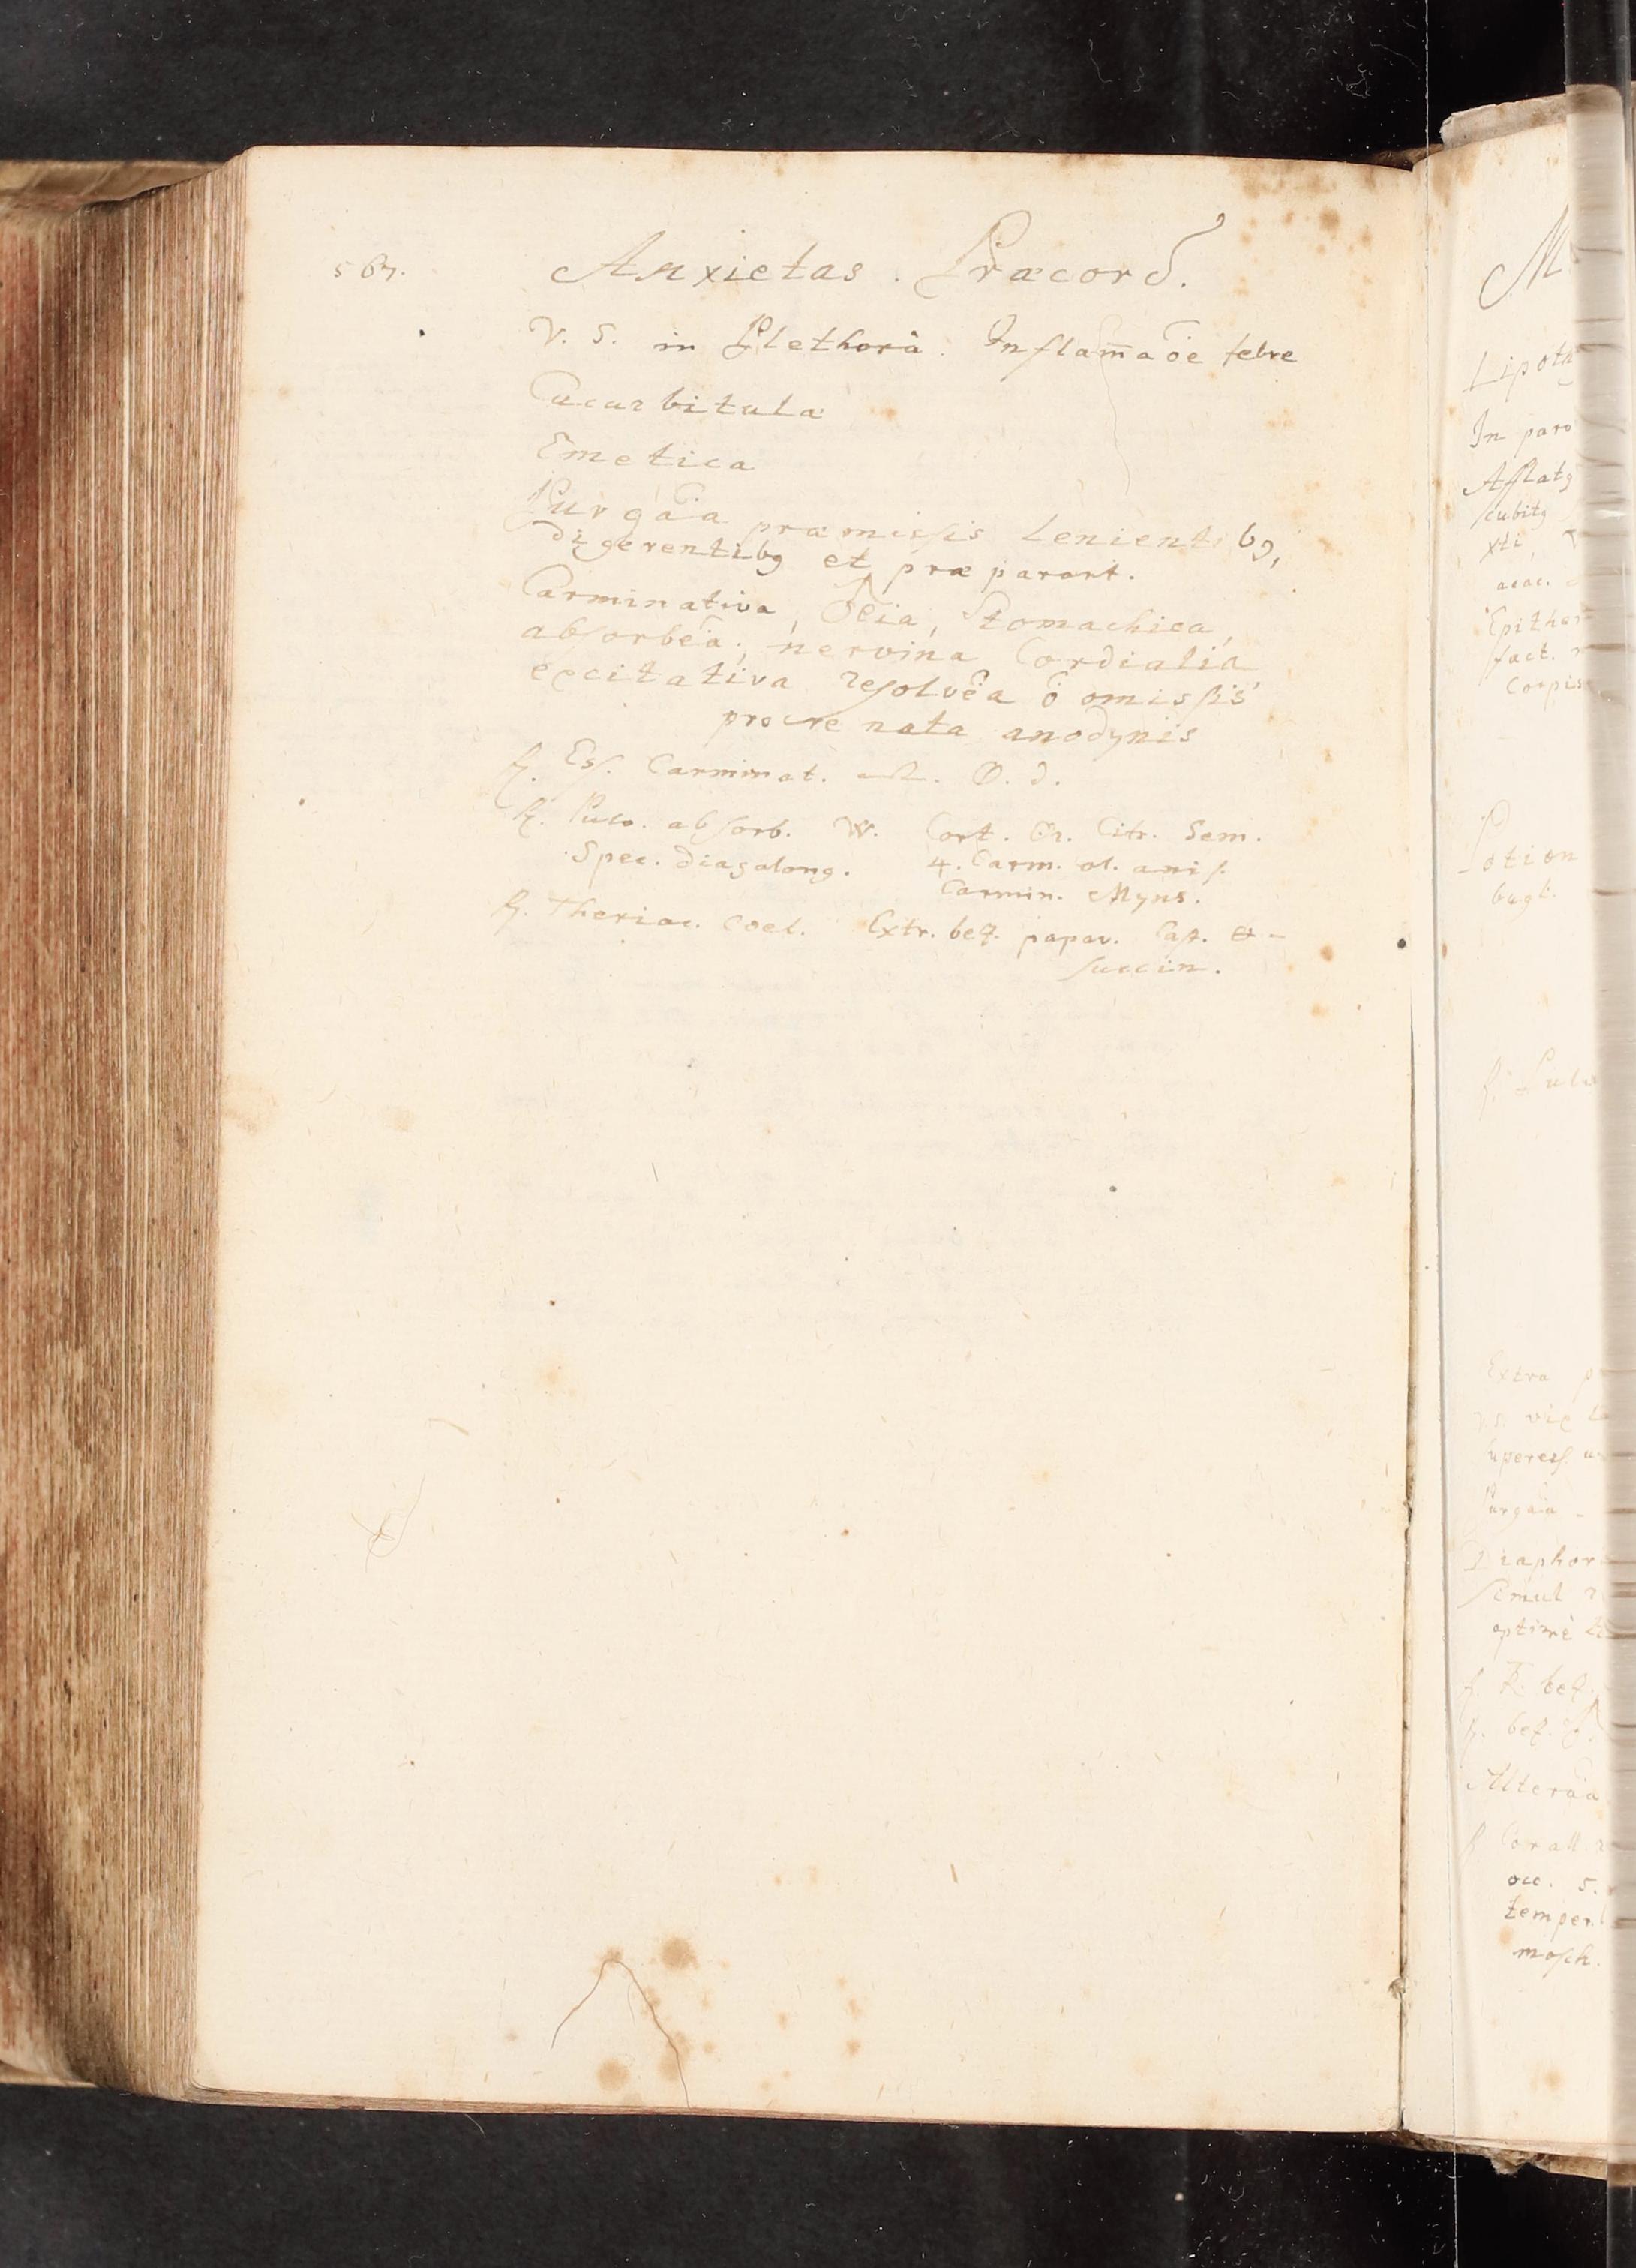 567.
Anxietas. Præcord.
V. S. in Plethorâ. Inflam̄aõe febre
Cucurbitulæ
Emetica
Purgãa præmissis lenientibꝫ,
digerentibꝫ et præparant.
Carminativa, Olia, Stomachica,
absorbẽa, nervina Cordialia,
excitativa resolvẽa õ omissis
pro re nata anodynis
℞. Ess. Carminat. d.
℞. Pulv. absorb. W. Cort. Citr. Sem.
Spec. diagalang. 4. Carm. ol. anis.
Carmin. Myns.
℞. Theriac. coel. Extr. bez. papav. Cast.
succin.
M
Lipoth
In paro
Afflatꝫ
cubitꝫ
xti,
acac.
Epithe
fact.
Corpis
Potion
bagl.
℞. Pulv
Extra p
V. S. vix
superess.
Purgãa
Diaphor
simul
optimè
℞. bez.
℞. bez.
Alterãa
℞. Corall.
occ. 5.
temper.
mosch.